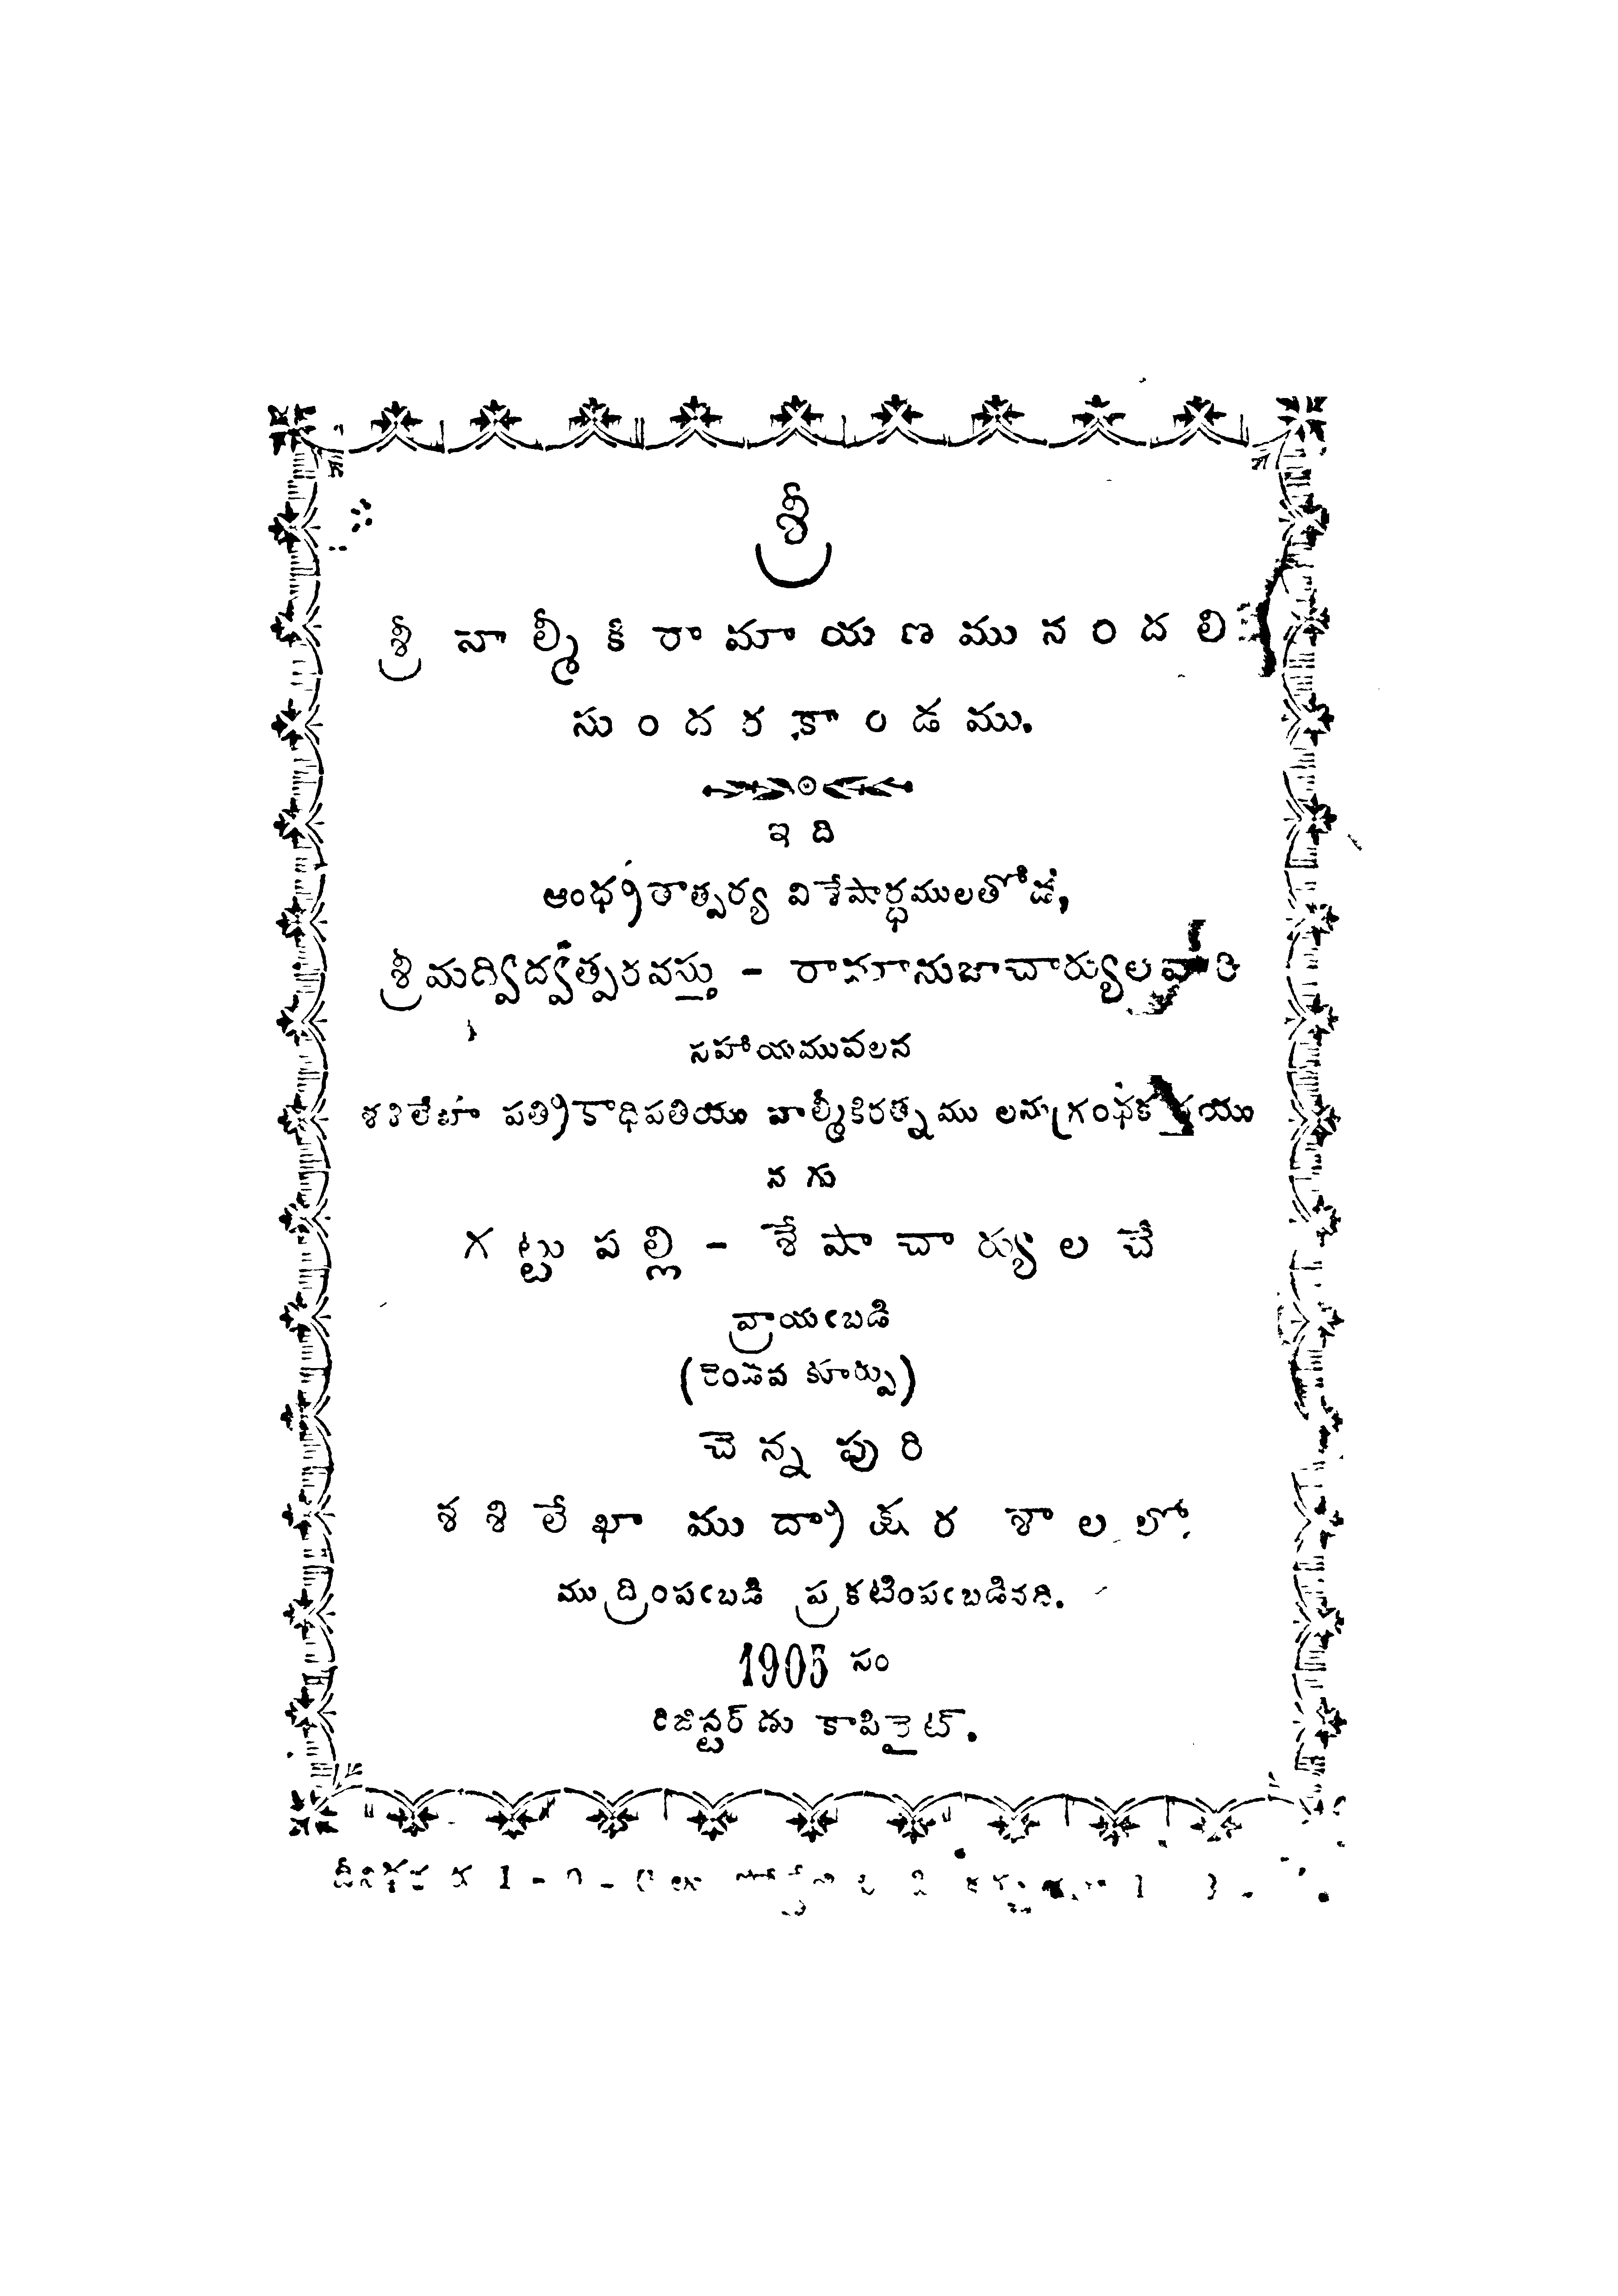 శ్రీ
శ్రీ వాల్మీకి రామాయణమునందలి
సుందరకాండము.
ఇది
ఆంధ్రతాత్పర్య విశేషార్థములతోడ,
శ్రీమద్విద్వత్పరవస్తు - రామానుజాచార్యులవారి
సహాయమువలన
శశిలేఖా పత్రికాధిపతియు వాల్మీకిరత్నము లను గ్రంథకర్తయు
నగు
గట్టుపల్లి - శేషాచార్యులచే
వ్రాయఁబడి
(రెండవ కూర్పు)
చెన్నపురి
శశిలేఖా ముద్రాక్షర శాలలో
ముద్రింపఁబడి ప్రకటింపఁబడినది.
1905 సం
రిజిస్టర్ డు కాపిరైట్.